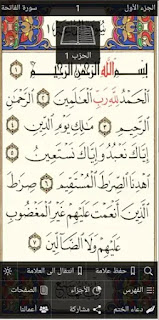 الجزء الأول 1 سورة الفاتحة
الحزب 1
بِسْمِ اللَّهِ الرَّحْمَٰنِ الرَّحِيمِ ١
الْحَمْدُ لِلَّهِ رَبِّ الْعَالَمِينَ ٢ الرَّحْمَٰنِ
الرَّحِيمِ ٣ مَالِكِ يَوْمِ الدِّينِ ٤
إِيَّاكَ نَعْبُدُ وَإِيَّاكَ نَسْتَعِينُ ٥
اهْدِنَا الصِّرَاطَ الْمُسْتَقِيمَ ٦ صِرَاطَ
الَّذِينَ أَنْعَمْتَ عَلَيْهِمْ غَيْرِ الْمَغْضُوبِ
عَلَيْهِمْ وَلَا الضَّالِّينَ ٧
حفظ علامة انتقال الى العلامة
الفهرس الأجزاء الصفحات
دعاء الختم مشاركة أعمالنا